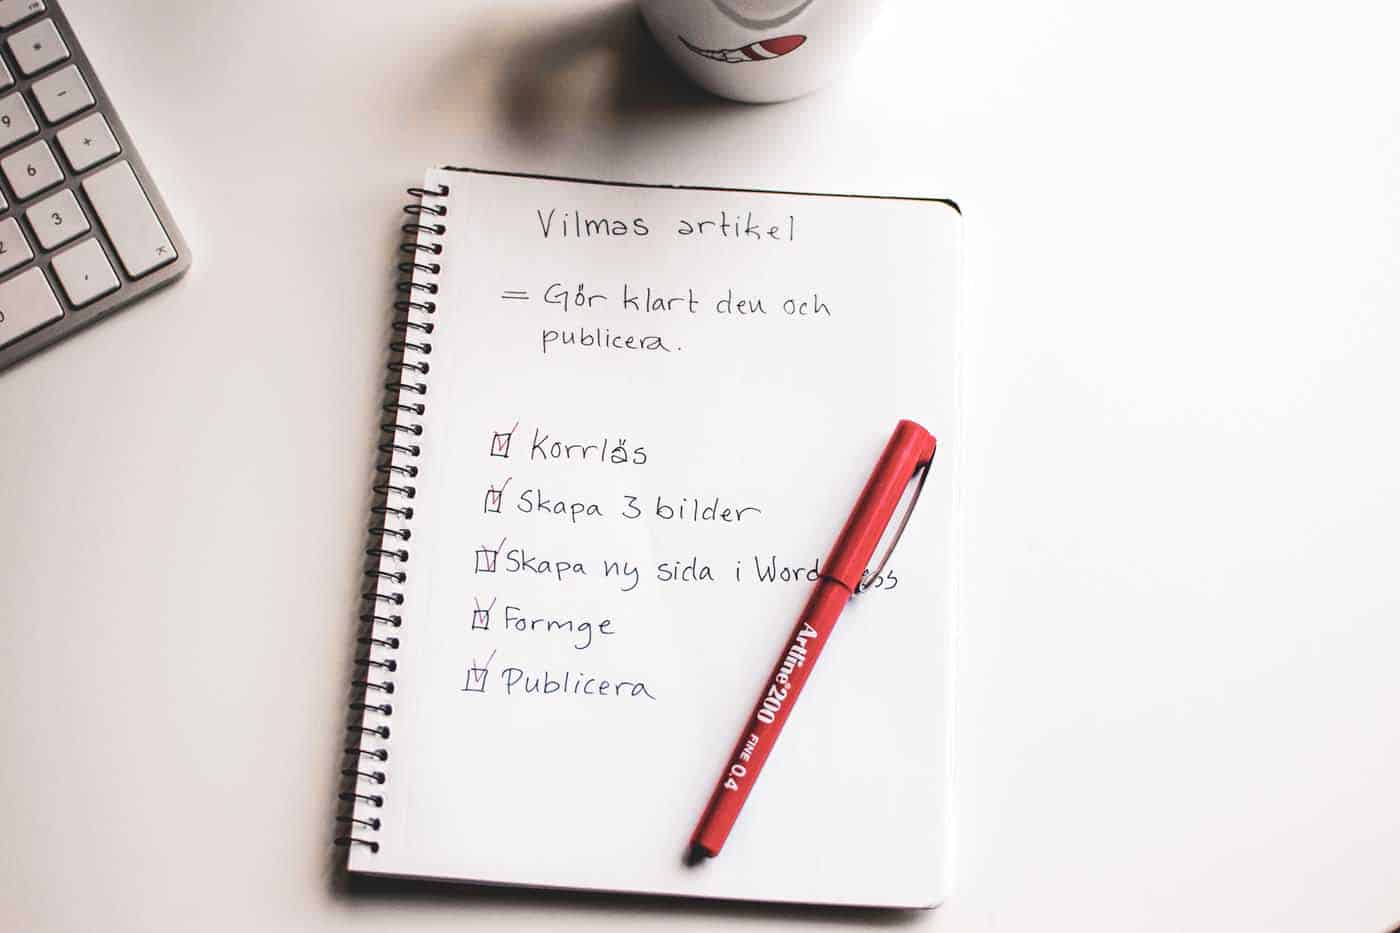 Vilmas artikel
= Gör klart den och
publicera.
Korrläs
Skapa 3 bilder
Skapa ny sida i
Formge
Publicera
Artline 200 FINE 0.4
*
-
9
+
6
3
2
,
0